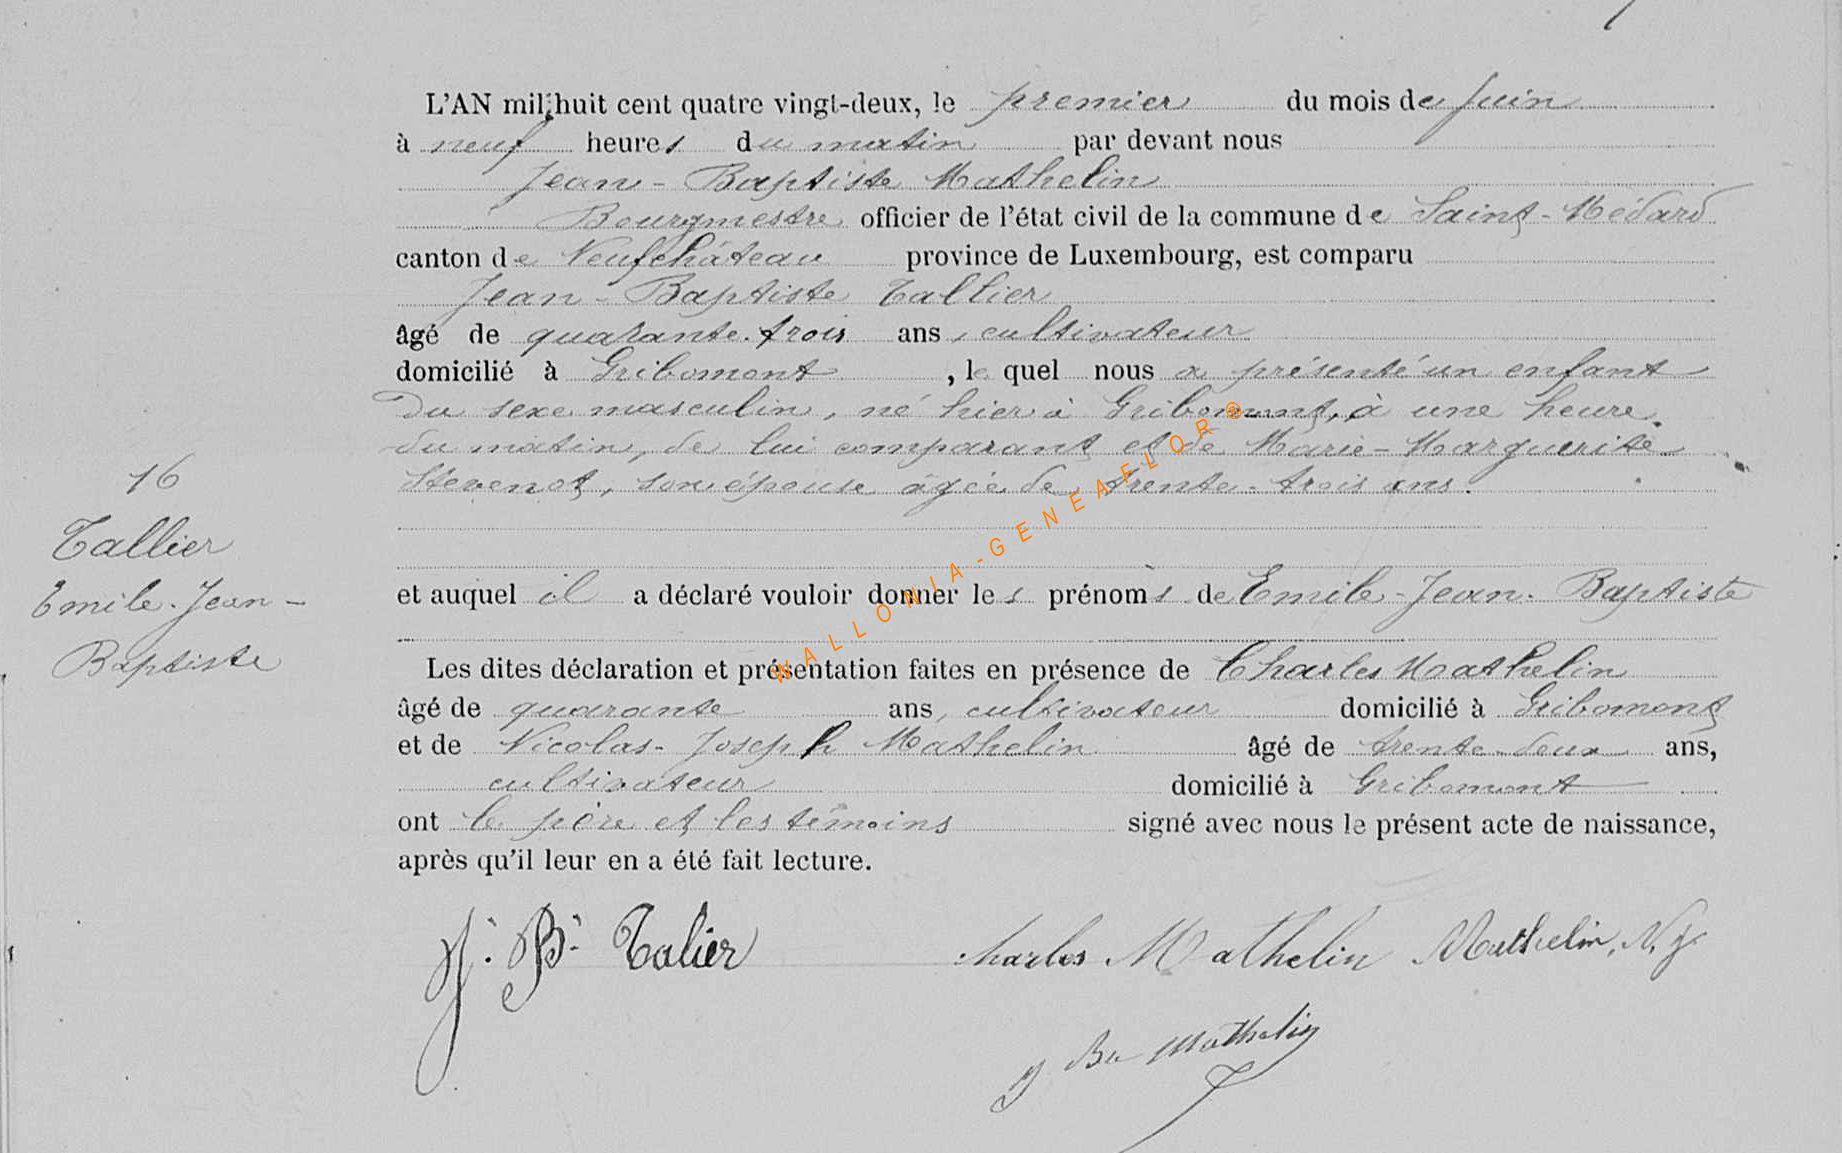 L'AN mil huit cent quatre vingt-deux, le premier du mois de Juin
à neuf heures du matin par devant nous
Jean-Baptiste Mathelin
Bourgmestre officier de l'état civil de la commune de Saint-Médard
canton de Neufchâteau province de Luxembourg, est comparu
Jean-Baptiste Tallier
âgé de quarante-trois ans, cultivateur
domicilié à Gribomont, lequel nous a présenté un enfant
du sexe masculin, né hier à Gribomont, à une heure
du matin, de lui comparant et de Marie-Marguerite
Stevenot, son épouse âgée de trente-trois ans.
16
Tallier
Emile-Jean-
Baptiste
et auquel il a déclaré vouloir donner les prénoms de Emile-Jean-Baptiste
Les dites déclaration et présentation faites en présence de Charles Mathelin
âgé de quarante ans, cultivateur domicilié à Gribomont
et de Nicolas-Joseph Mathelin âgé de trente-deux ans,
cultivateur domicilié à Gribomont
ont le père et les témoins signé avec nous le présent acte de naissance,
après qu'il leur en a été fait lecture.
J. B. Talier Charles Mathelin Mathelin, N. J.
J Bte Mathelin
WALLONIA-GENEAFLOR®